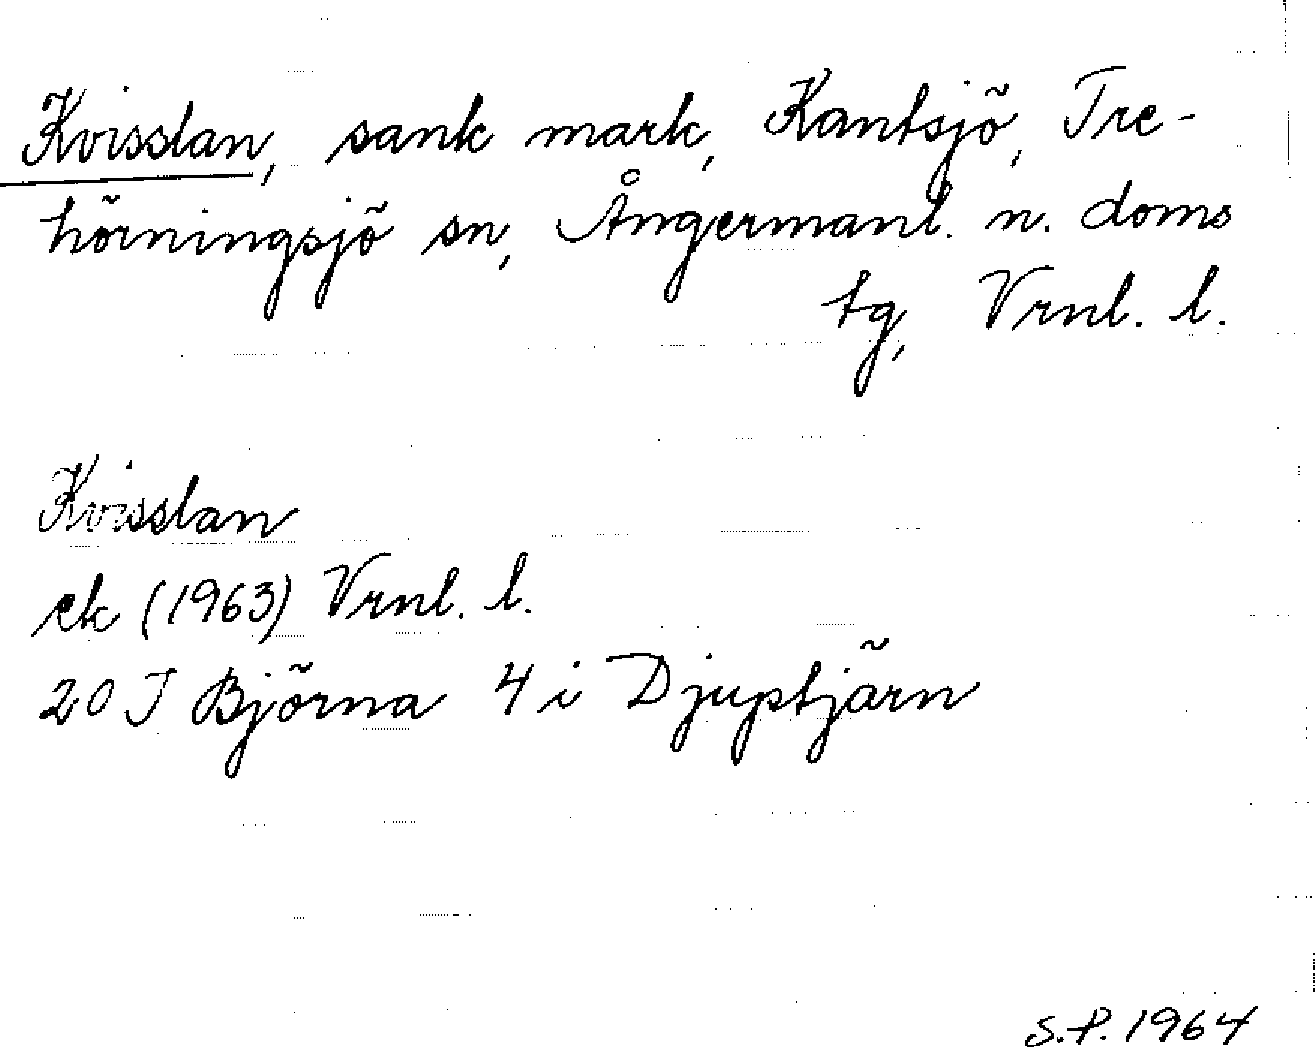 Kvisslan, sank mark, Kantsjö, Tre-
hörningsjö sn, Ångermanl. n. doms
tg, Vrnl. l.
Kvisslan
ek (1963) Vrnl. l.
20 J Björna 4 i Djuptjärn
S.P. 1964